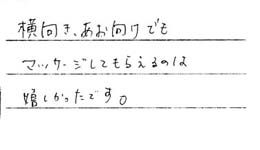 横向き、あお向けでも
マッサージしてもらえるのは
嬉しかったです。